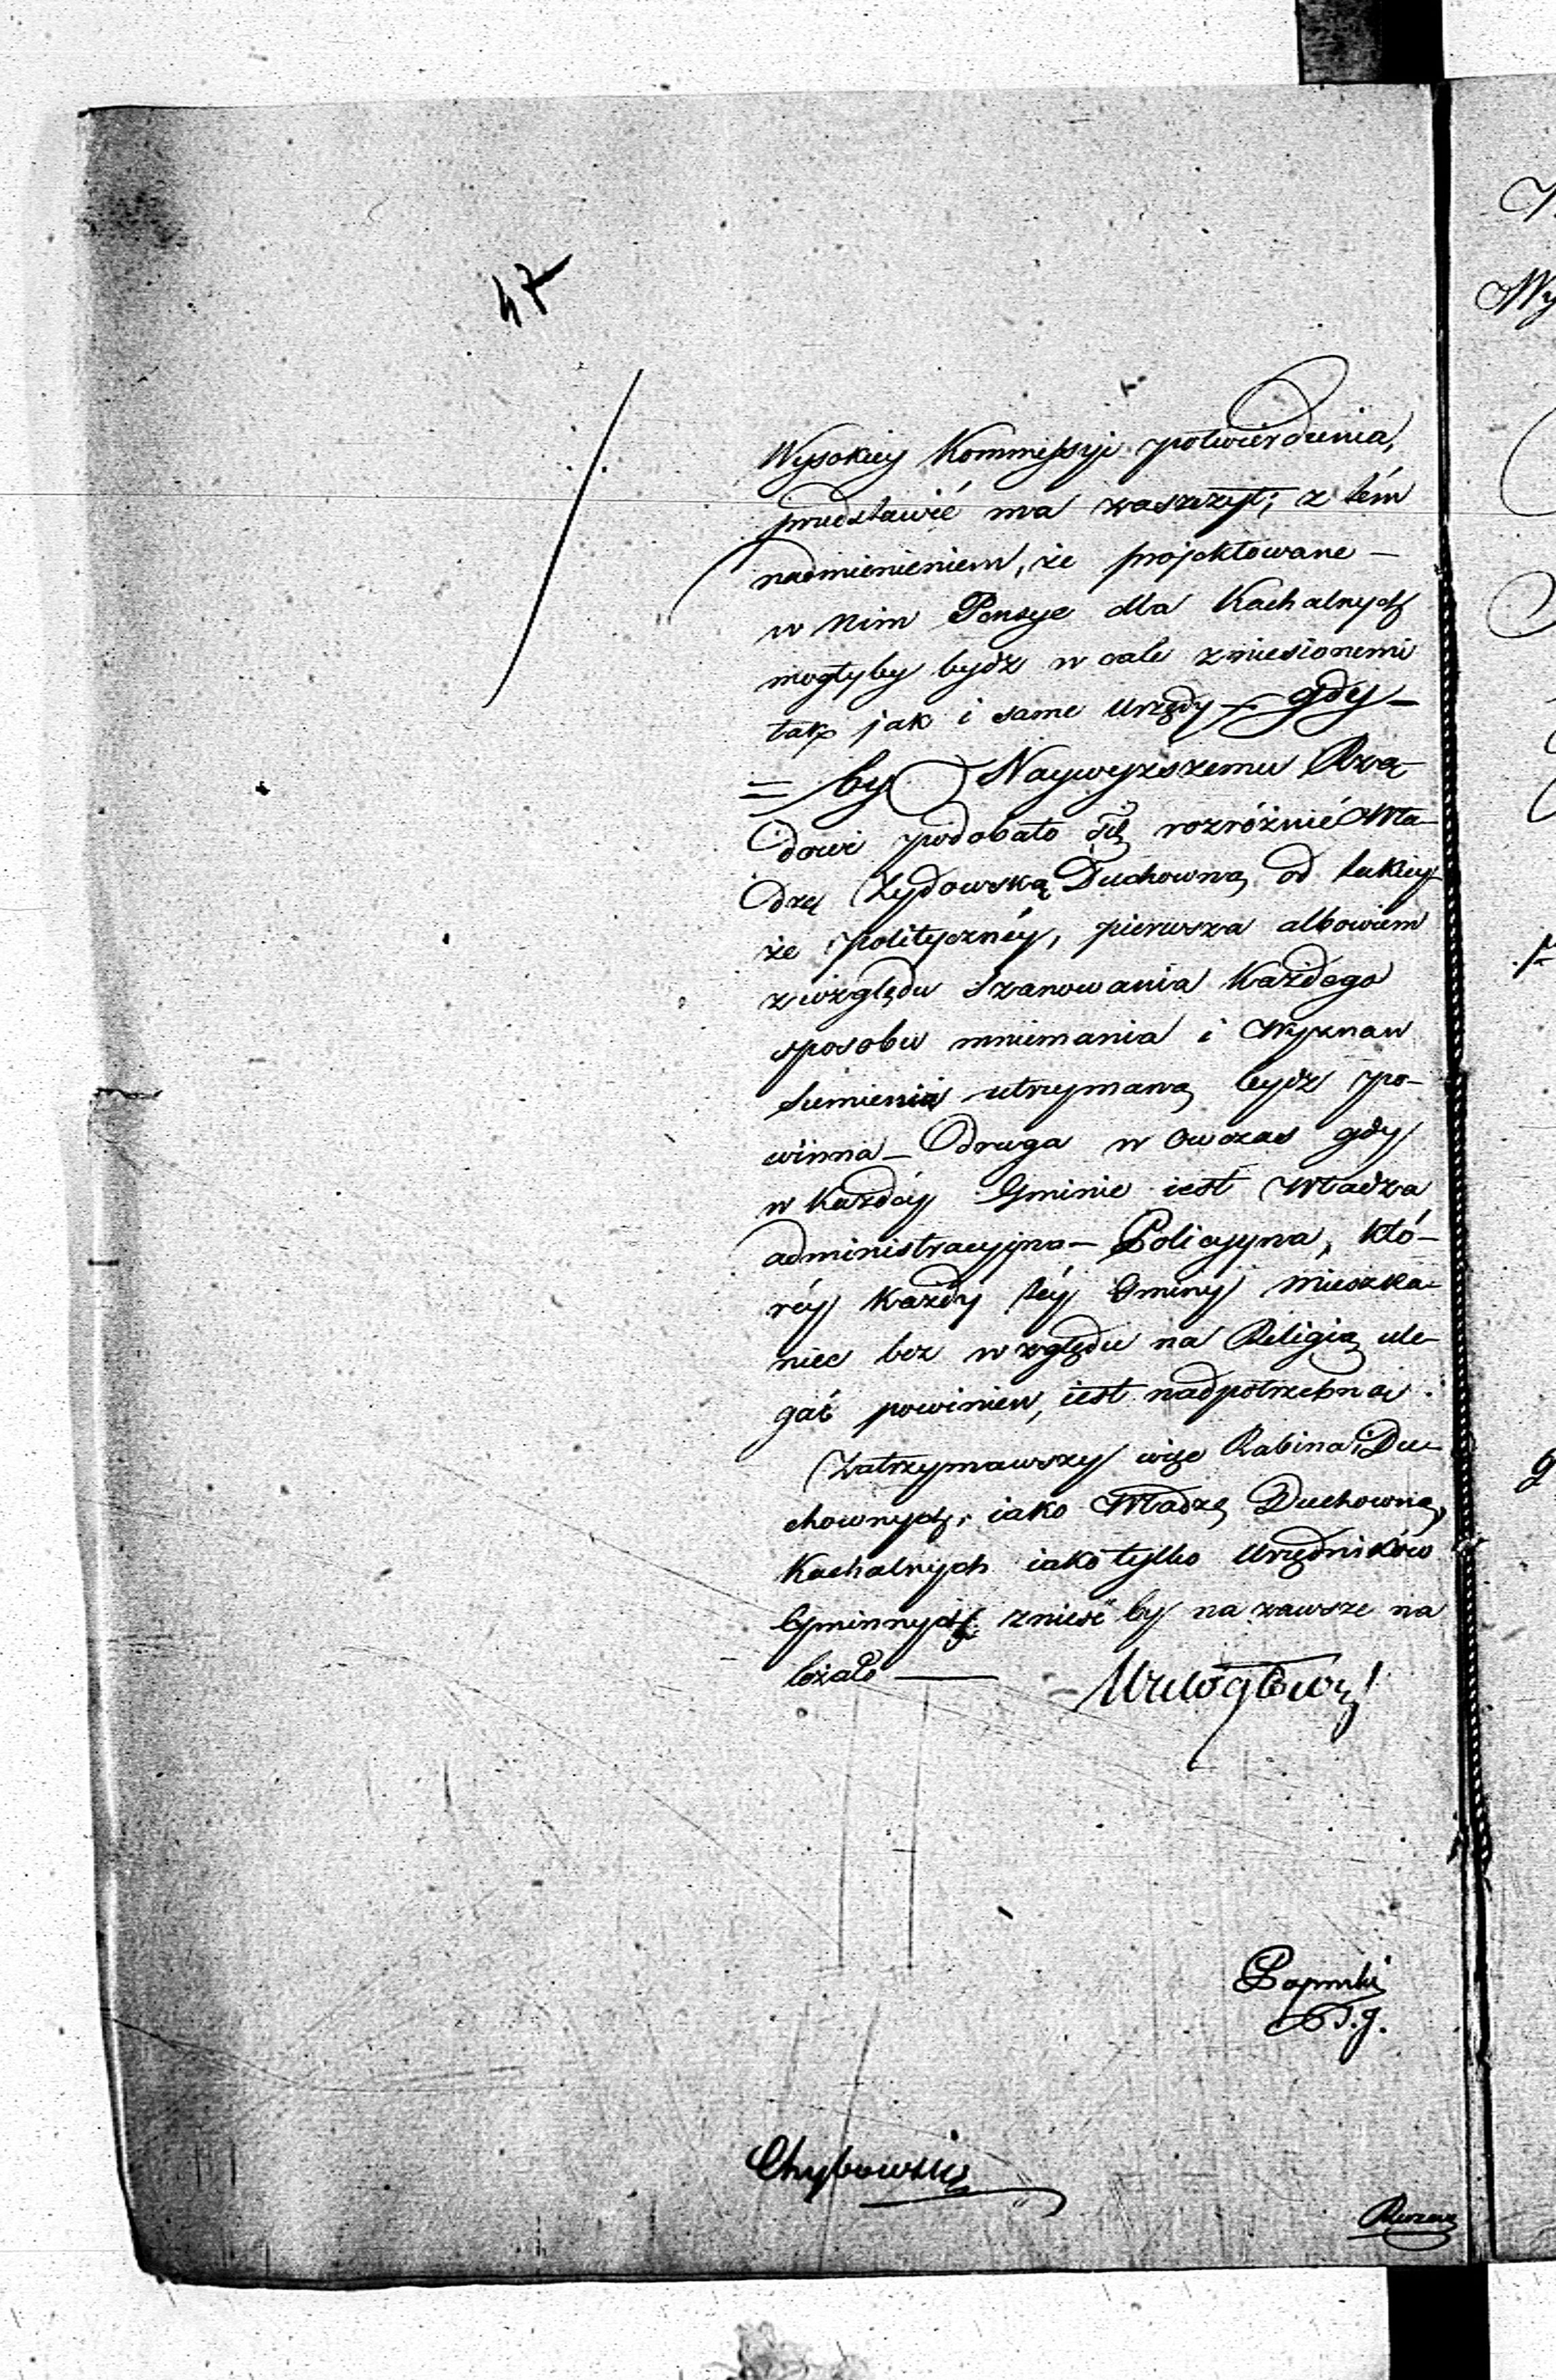 47
Wysokiey Kommissyi potwierdzenia,
przedstawić ma zaszczyt; z tém
nadmienieniem, że projektowane —
w nim Pensye dla Kachalnych
mogłyby bydź w cale zniesionemi
tak jak i same Urzędy — gdy —
= by Naywyższemu Rzą-
dowi podobało się rozróżnić Wła-
dzę Żydowską Duchowną od takiey-
że polityczney, pierwsza albowiem
z względu szanowania każdego
sposobu mniemania i Wyznań
sumienia utrzymaną bydź po-
winna — druga w ówczas gdy
w każdéy Gminie iest Władza
administracyjna — Policyyna, któ-
réy każdy téy Gminy mieszka-
niec bez względu na Religią ule-
gać powinien, iest nadpotrzebna.
Zatrzymawszy więc Rabina i Du-
chownych, iako Władzę Duchowną,
Kachalnych iako tylko Urzędników
Gminnych znieść by na zawsze na
leżało —
Wielogłowsky
T. J.
Chybowski